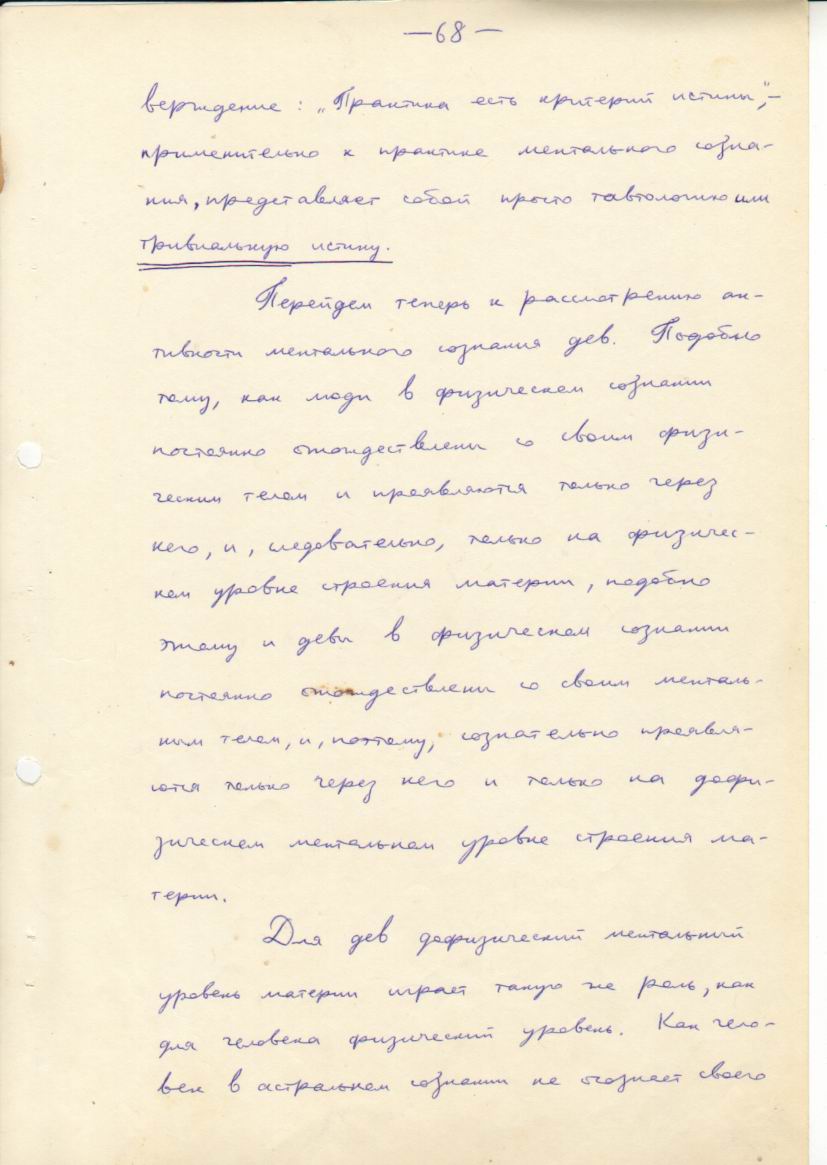 — 68 —
верждение: „Практика есть критерий истины", –
применительно к практике ментального созна-
ния, представляет собой просто тавтологию или
тривиальную истину.
Перейдем теперь к рассмотрению ак-
тивности ментального сознания дев. Подобно
тому, как люди в физическом сознании
постоянно отождествлены со своим физи-
ческим телом и проявляются только через
него, и, следовательно, только на физичес-
ком уровне строения материи, подобно
этому и девы в физическом сознании
постоянно отождествлены со своим менталь-
ным телом, и, поэтому, сознательно проявля-
ются только через него и только на дофи-
зическом ментальном уровне строения ма-
терии.
Для дев дофизический ментальный
уровень материи играет такую же роль, как
для человека физический уровень. Как чело-
век в астральном сознании не осознает своего